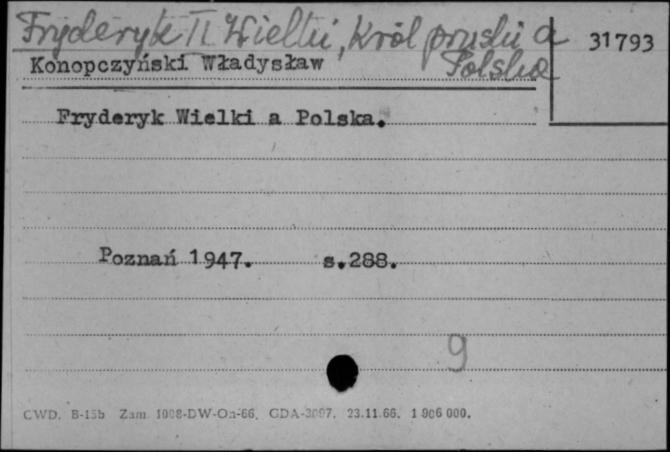 Fryderyk II Wielki, Król pruski a Polska
31793
Konopczyński Władysław
Fryderyk Wielki a Polska.
Poznań 1947. s.288.
9
CWD. B-15b Zam. 1008-DW-Oa-66. GDA-3097. 23.11.66. 1 906 000.